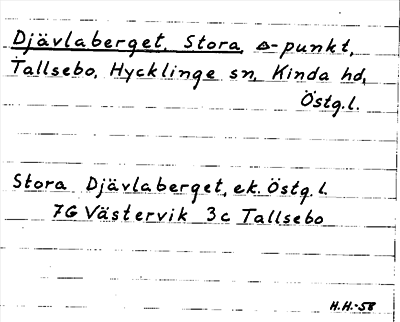 Djävlaberget, Stora, △-punkt,
Tallsebo, Hycklinge sn, Kinda hd,
Östg.l.
Stora Djävlaberget, ek. Östg.l.
7G Västervik 3c Tallsebo
H.H.-58